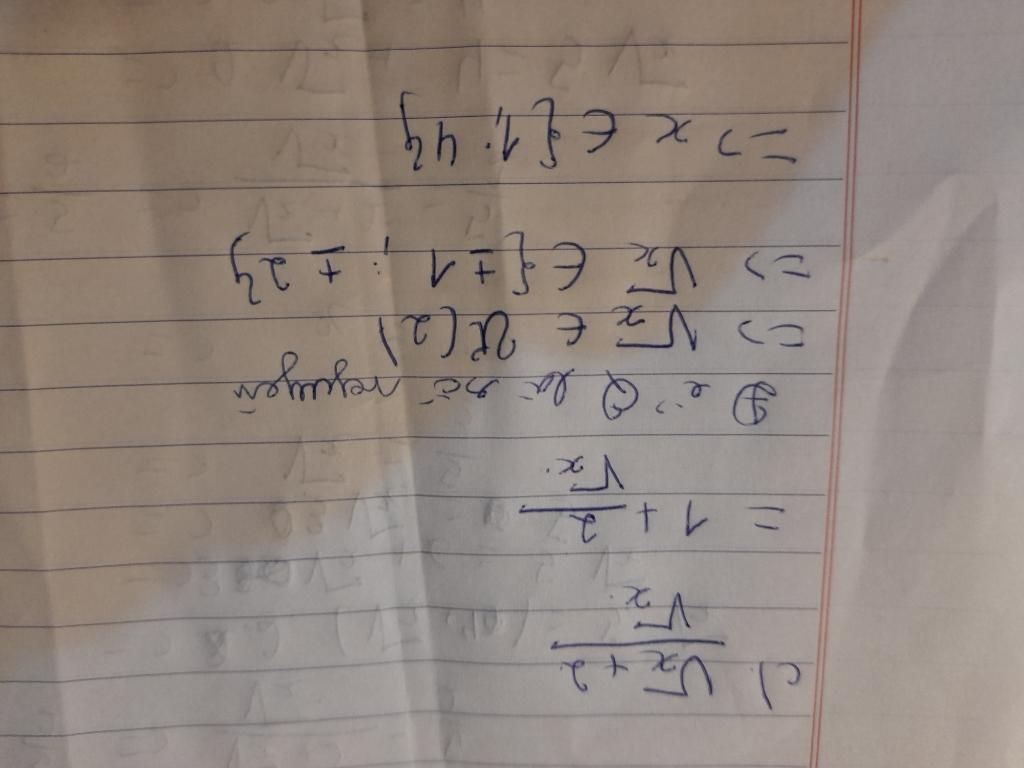 c) (√x + 2)/√x
= 1 + 2/√x
Để Q là số nguyên
=> √x ∈ Ư(2)
=> √x ∈ {±1; ±2}
=> x ∈ {1; 4}